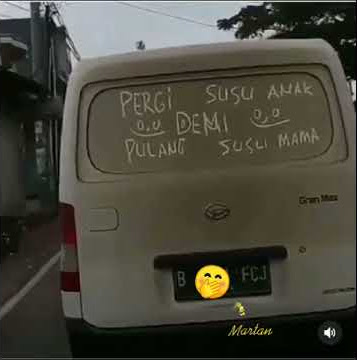 PERGI SUSU ANAK
DEMI
PULANG SUSU MAMA
Gran Max
B FCJ
Martan